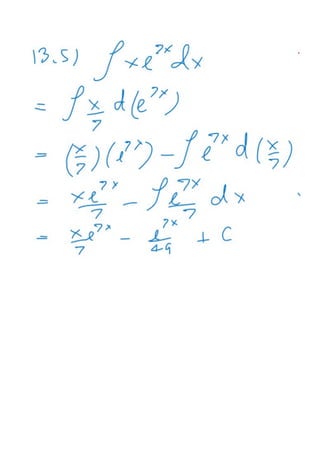 13.5) ∫ xe^{7x} dx
= ∫ x/7 d(e^{7x})
= (x/7)(e^{7x}) - ∫ e^{7x} d(x/7)
= xe^{7x}/7 - ∫ e^{7x}/7 dx
= xe^{7x}/7 - e^{7x}/49 + C